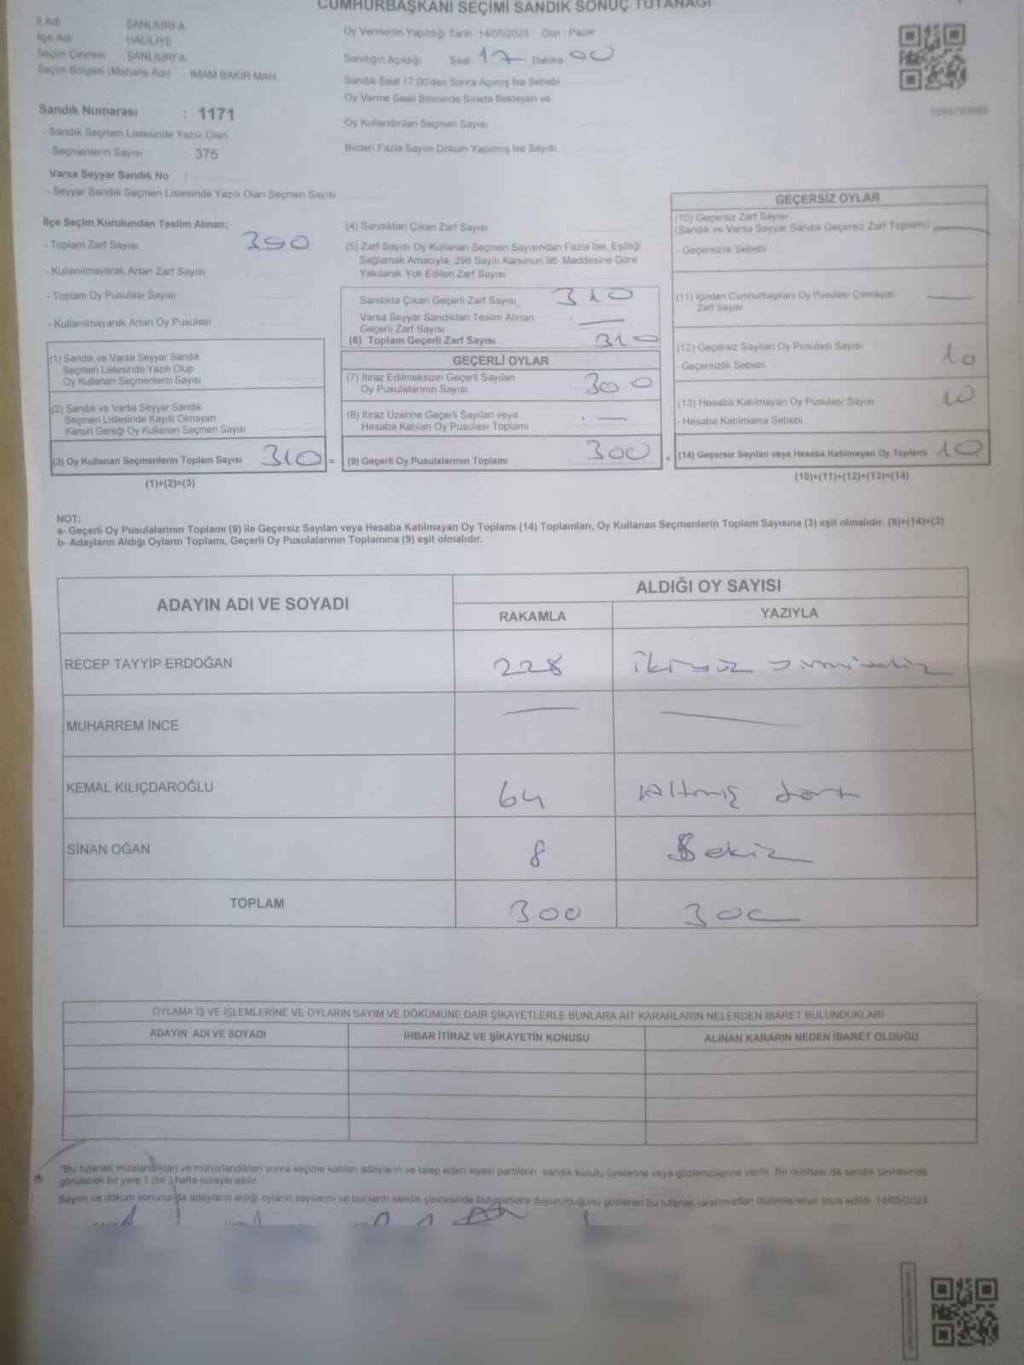 CUMHURBAŞKANI SEÇİMİ SANDIK SONUÇ TUTANAĞI
İl Adı ŞANLIURFA
İlçe Adı HALİLİYE
Seçim Çevresi ŞANLIURFA
Seçim Bölgesi (Mahalle Adı) İMAM BAKIR MAH.
Sandık Numarası : 1171
- Sandık Seçmen Listesinde Yazılı Olan
Seçmenlerin Sayısı : 375
Varsa Seyyar Sandık No :
- Seyyar Sandık Seçmen Listesinde Yazılı Olan Seçmen Sayısı
Oy Vermenin Yapıldığı Tarih 14/05/2023 Gün : Pazar
Sandığın Açıldığı Saat 17 Dakika 00
Sandık Saat 17:00'den Sonra Açılmış İse Sebebi
Oy Verme Saati Bitiminde Sırada Bekleyen ve
Oy Kullandırılan Seçmen Sayısı
Birden Fazla Sayım Döküm Yapılmış İse Sayısı
İlçe Seçim Kurulundan Teslim Alınan;
- Toplam Zarf Sayısı 390
- Kullanılmayarak Artan Zarf Sayısı
- Toplam Oy Pusulası Sayısı
- Kullanılmayarak Artan Oy Pusulası
(1) Sandık ve Varsa Seyyar Sandık
Seçmen Listesinde Yazılı Olup
Oy Kullanan Seçmenlerin Sayısı
(2) Sandık ve Varsa Seyyar Sandık
Seçmen Listesinde Kayıtlı Olmayan
Kanun Gereği Oy Kullanan Seçmen Sayısı
(3) Oy Kullanan Seçmenlerin Toplam Sayısı 310 =
(1)+(2)=(3)
(4) Sandıktan Çıkan Zarf Sayısı
(5) Zarf Sayısı Oy Kullanan Seçmen Sayısından Fazla İse, Eşitliği
Sağlamak Amacıyla, 298 Sayılı Kanunun 98. Maddesine Göre
Yakılarak Yok Edilen Zarf Sayısı
Sandıkta Çıkan Geçerli Zarf Sayısı 310
Varsa Seyyar Sandıktan Teslim Alınan
Geçerli Zarf Sayısı —
(6) Toplam Geçerli Zarf Sayısı 310
GEÇERLİ OYLAR
(7) İtiraz Edilmeksizin Geçerli Sayılan
Oy Pusulalarının Sayısı 300
(8) İtiraz Üzerine Geçerli Sayılan veya
Hesaba Katılan Oy Pusulası Toplamı —
(9) Geçerli Oy Pusulalarının Toplamı 300 +
GEÇERSİZ OYLAR
(10) Geçersiz Zarf Sayısı
(Sandık ve Varsa Seyyar Sandık Geçersiz Zarf Toplamı) —
- Geçersizlik Sebebi
(11) İçinden Cumhurbaşkanı Oy Pusulası Çıkmayan
Zarf Sayısı —
(12) Geçersiz Sayılan Oy Pusulası Sayısı 10
- Geçersizlik Sebebi
(13) Hesaba Katılmayan Oy Pusulası Sayısı 10
- Hesaba Katılmama Sebebi
(14) Geçersiz Sayılan veya Hesaba Katılmayan Oy Toplamı 10
(10)+(11)+(12)+(13)=(14)
NOT:
a- Geçerli Oy Pusulalarının Toplamı (9) ile Geçersiz Sayılan veya Hesaba Katılmayan Oy Toplamı (14) Toplamları, Oy Kullanan Seçmenlerin Toplam Sayısına (3) eşit olmalıdır. (9)+(14)=(3)
b- Adayların Aldığı Oyların Toplamı, Geçerli Oy Pusulalarının Toplamına (9) eşit olmalıdır.
ADAYIN ADI VE SOYADI
ALDIĞI OY SAYISI
RAKAMLA YAZIYLA
RECEP TAYYİP ERDOĞAN 228 ikiyüz yirmisekiz
MUHARREM İNCE — —
KEMAL KILIÇDAROĞLU 64 Altmış dört
SİNAN OĞAN 8 Sekiz
TOPLAM 300 300
OYLAMA İŞ VE İŞLEMLERİNE VE OYLARIN SAYIM VE DÖKÜMÜNE DAİR ŞİKAYETLERLE BUNLARA AİT KARARLARIN NELERDEN İBARET BULUNDUKLARI
ADAYIN ADI VE SOYADI İHBAR İTİRAZ VE ŞİKAYETİN KONUSU ALINAN KARARIN NEDEN İBARET OLDUĞU
"Bu tutanak imzalandıktan ve mühürlendikten sonra seçime katılan adayların ve talep eden siyasi partilerin sandık kurulu üyelerine veya gözlemcilerine verilir. Bir nushası da sandık çevresinde
görülecek bir yere 1 (bir) hafta süreyle asılır.
Sayım ve döküm sonucunda adayların aldığı oyların sayılarını ve bunların sandık çevresinde bulunanlara duyurulduğunu gösteren bu tutanak tarafımızdan düzenlenerek imza edildi. 14/05/2023